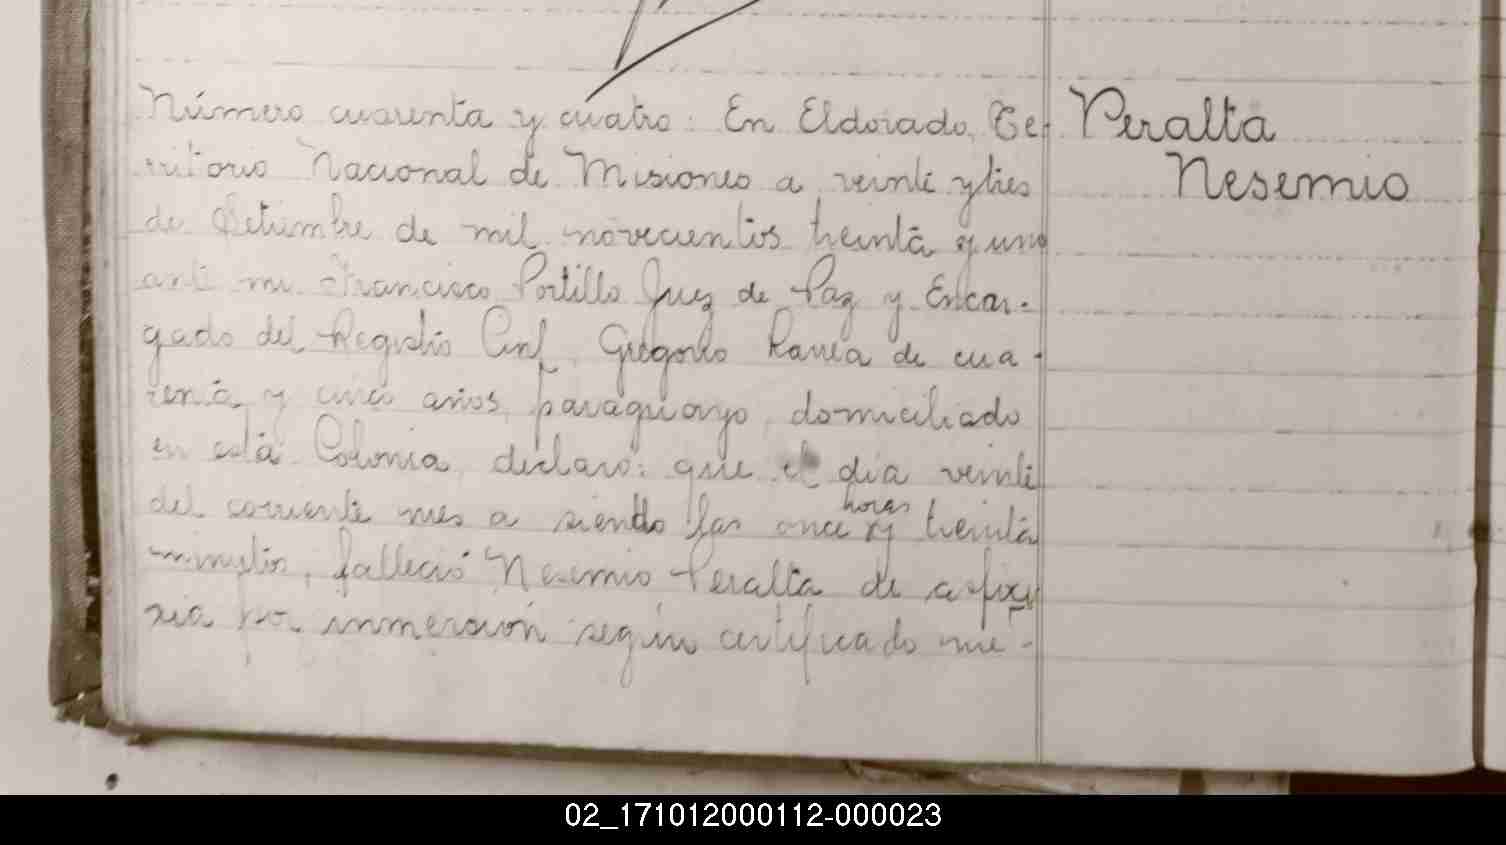 Número cuarenta y cuatro: En Eldorado, Te-
rritorio Nacional de Misiones a veinte y tres
de Setiembre de mil novecientos treinta y uno
ante mi Francisco Portillo Juez de Paz y Encar-
gado del Registro Civil, Gregorio de cua-
renta y cinco años, paraguayo, domiciliado
en esta Colonia, declaró: que el dia veinte
del corriente mes a siendo las once horas y treinta
minutos, falleció Nesemio Peralta de asfixi
xia por inmersión según certificado me-
Peralta
Nesemio
02_171012000112-000023